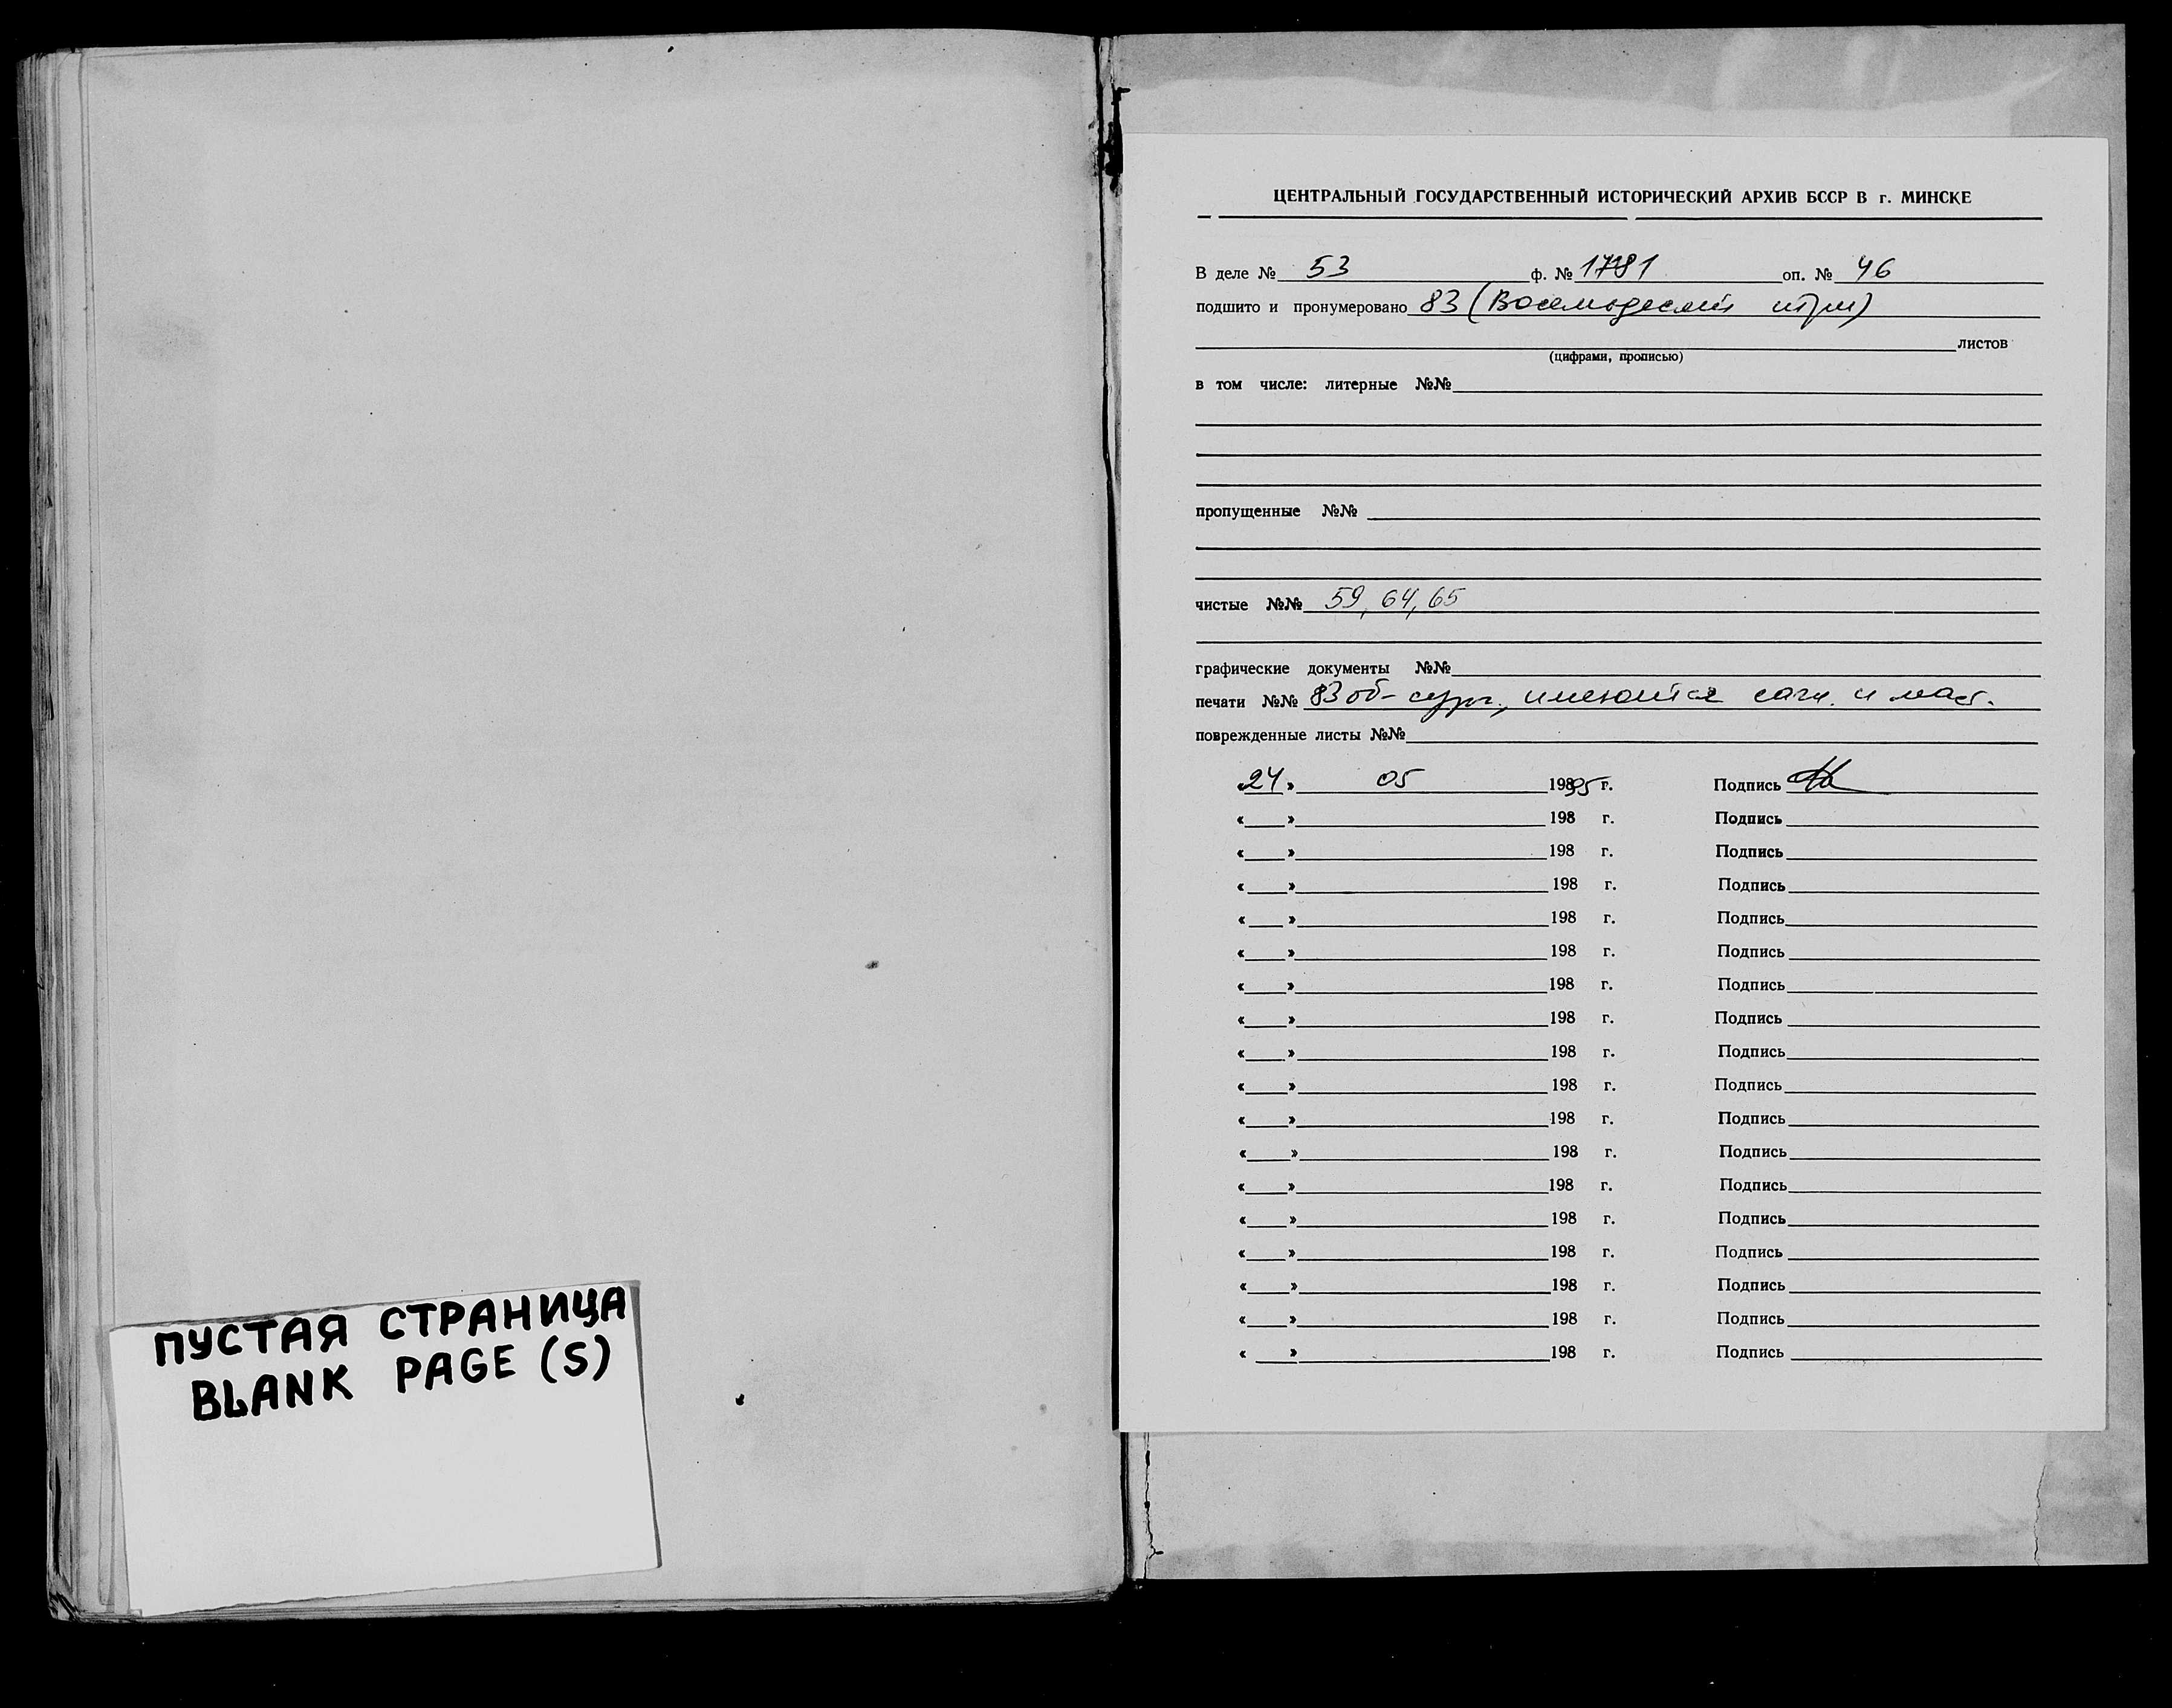 ПУСТАЯ СТРАНИЦА
BLANK PAGE (S)
ЦЕНТРАЛЬНЫЙ ГОСУДАРСТВЕННЫЙ ИСТОРИЧЕСКИЙ АРХИВ БССР В г. МИНСКЕ
В деле № 53 ф. № 1781 оп. № 46
подшито и пронумеровано 83 (Восемьдесят три)
листов
(цифрами, прописью)
в том числе: литерные №№
пропущенные №№
чистые №№ 59, 64, 65
графические документы №№
печати №№ 83 об - сург., имеются саж. и маст.
поврежденные листы №№
«24» 05 1995 г. Подпись
« » 198 г. Подпись
« » 198 г. Подпись
« » 198 г. Подпись
« » 198 г. Подпись
« » 198 г. Подпись
« » 198 г. Подпись
« » 198 г. Подпись
« » 198 г. Подпись
« » 198 г. Подпись
« » 198 г. Подпись
« » 198 г. Подпись
« » 198 г. Подпись
« » 198 г. Подпись
« » 198 г. Подпись
« » 198 г. Подпись
« » 198 г. Подпись
« » 198 г. Подпись